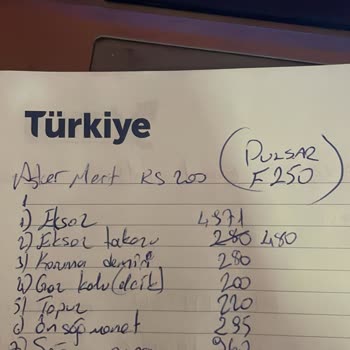 Türkiye
(PULSAR
F250)
Asker Mert RS 200
1) Eksoz 4371
2) Eksoz takozu 280 480
3) Koruma demiri 280
4) Gaz kolu (delik) 200
5) Topuz 220
6) Ön sağ manet 295